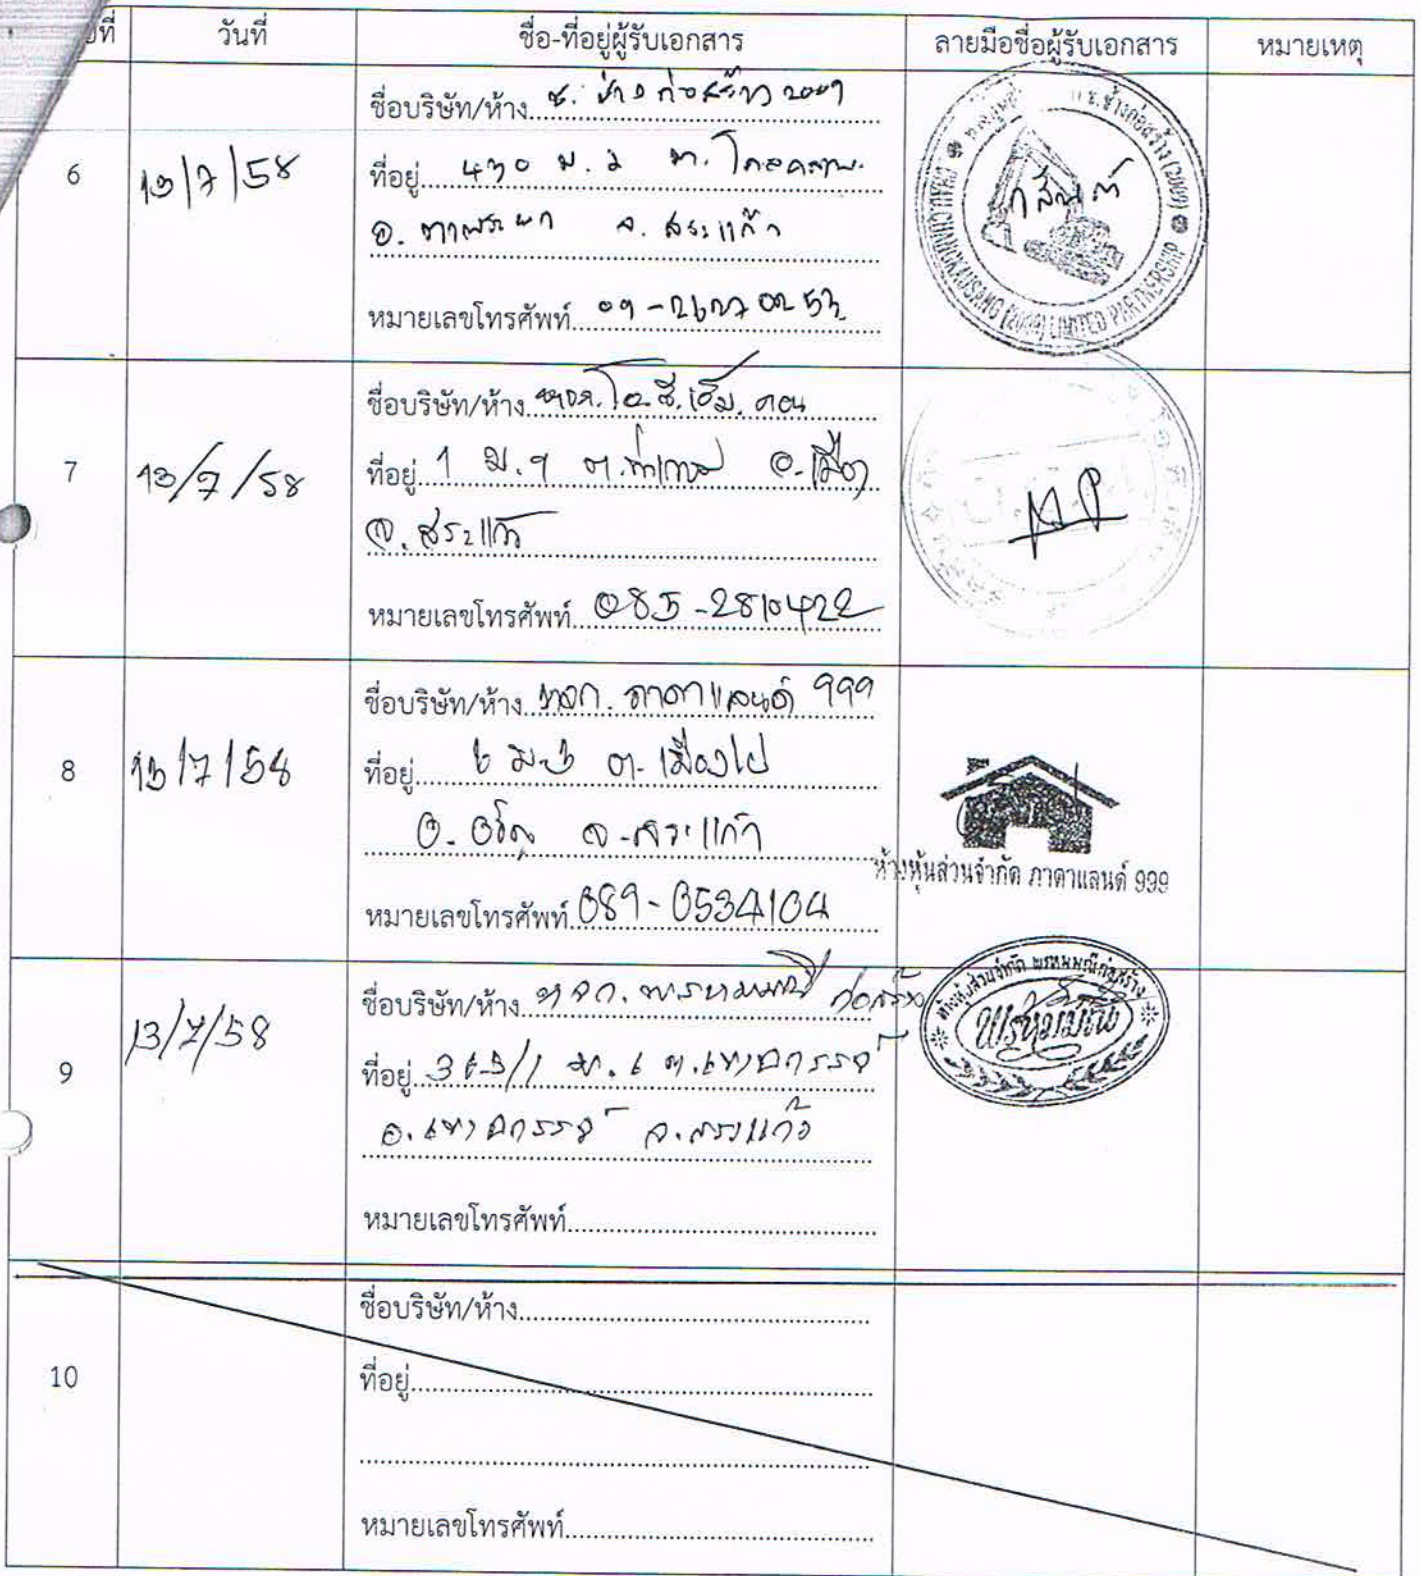 ที่ วันที่ ชื่อ-ที่อยู่ผู้รับเอกสาร ลายมือชื่อผู้รับเอกสาร หมายเหตุ
6 13/7/58
ชื่อบริษัท/ห้าง ช. ช่างก่อสร้าง 2009
ที่อยู่ 430 ม. 2 ต. โคคลาน
อ. ตาพระยา จ. สระแก้ว
หมายเลขโทรศัพท์
ช.ช่างก่อสร้าง (2009)
CHANGKAUSANG (2009) LIMITED PARTNERSHIP
7 13/7/58
ชื่อบริษัท/ห้าง หจก. โอ.ซี.เอ็ม. คอน
ที่อยู่ 1 ม. 9 ต.ท่าเกษม อ.เมือง
จ. สระแก้ว
หมายเลขโทรศัพท์ 085-2810422
8 13/7/58
ชื่อบริษัท/ห้าง หจก. ภาดาแลนด์ 999
ที่อยู่ 6 ม.3 ต. เมืองไผ่
อ. อรัญ จ. สระแก้ว
หมายเลขโทรศัพท์ 089-0534104
ห้างหุ้นส่วนจำกัด ภาดาแลนด์ 999
9 13/7/58
ชื่อบริษัท/ห้าง หจก. พรหมมณี ก่อสร้าง
ที่อยู่ 363/1 ม. 6 ต. เขาฉกรรจ์
อ. เขาฉกรรจ์ จ. สระแก้ว
หมายเลขโทรศัพท์
ห้างหุ้นส่วนจำกัด พรหมมณีก่อสร้าง
พรหมมณี
10
ชื่อบริษัท/ห้าง
ที่อยู่
หมายเลขโทรศัพท์